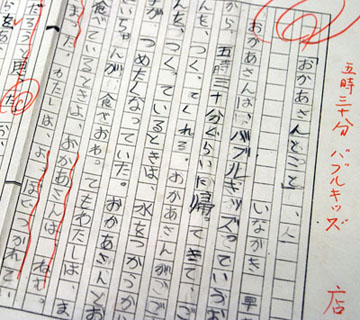 五時三十分 バブルキッズ 店
「おかあさんと
いながき 早
おかあさんは、バブルキッズっていうお
から、五時三十分ぐらいに帰ってきて、
んを、つくってくれる。おかあさんがご
んを、つくっているときは、水をつかうか
が、つめたくなっていた。おかあさんとお
いちゃんが、食べおわってもわたしは、ま
食べている
おかあさんは、ねむ
わたしは、よっぽどつかれてい
だろうと思